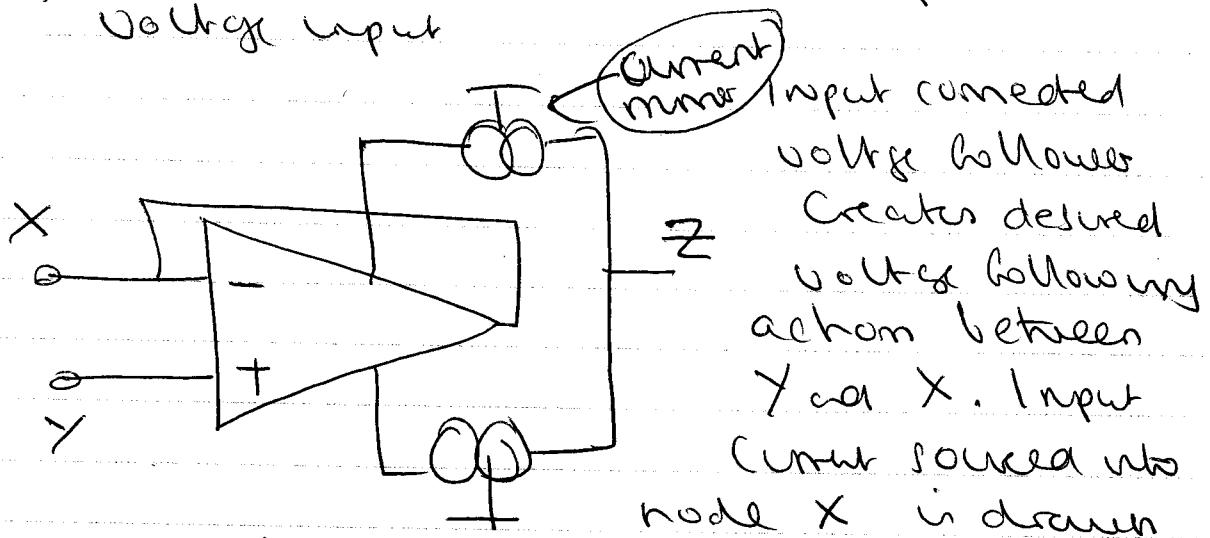 voltage input
current
mirror
Input connected
voltage follower
Creates desired
X
Z
voltage following
−
action between
+
Y and X. Input
Y
Current sourced into
node X is drawn